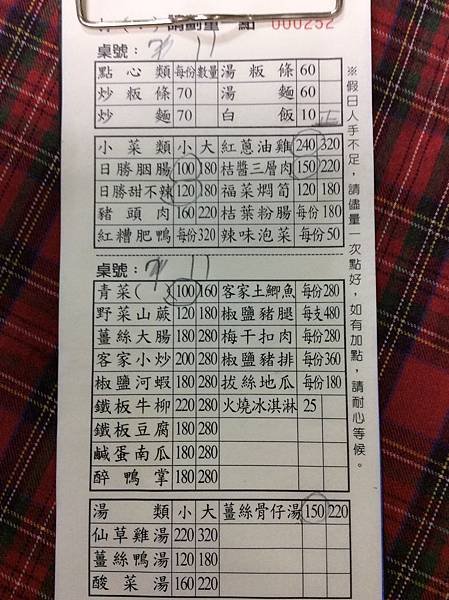 000252
桌號：
點心類 每份 數量 湯粄條 60
炒粄條 70 湯麵 60
炒麵 70 白飯 10
小菜類 小 大 紅蔥油雞 240 320
日勝胭腸 100 180 桔醬三層肉 150 220
日勝甜不辣 120 180 福菜燜筍 120 180
豬頭肉 160 220 桔葉粉腸 每份180
紅糟肥鴨 每份320 辣味泡菜 每份50
桌號：
青菜( ) 100 160 客家土鯽魚 每份280
野菜山蕨 120 180 椒鹽豬腿 每支480
薑絲大腸 180 280 梅干扣肉 每份280
客家小炒 200 280 椒鹽豬排 每份360
椒鹽河蝦 180 280 拔絲地瓜 每份180
鐵板牛柳 220 280 火燒冰淇淋 25
鐵板豆腐 180 280
鹹蛋南瓜 180 280
醉鴨掌 180 280
湯類 小 大 薑絲骨仔湯 150 220
仙草雞湯 220 320
薑絲鴨湯 120 180
酸菜湯 160 220
※假日人手不足，請儘量一次點好，如有加點，請耐心等候。